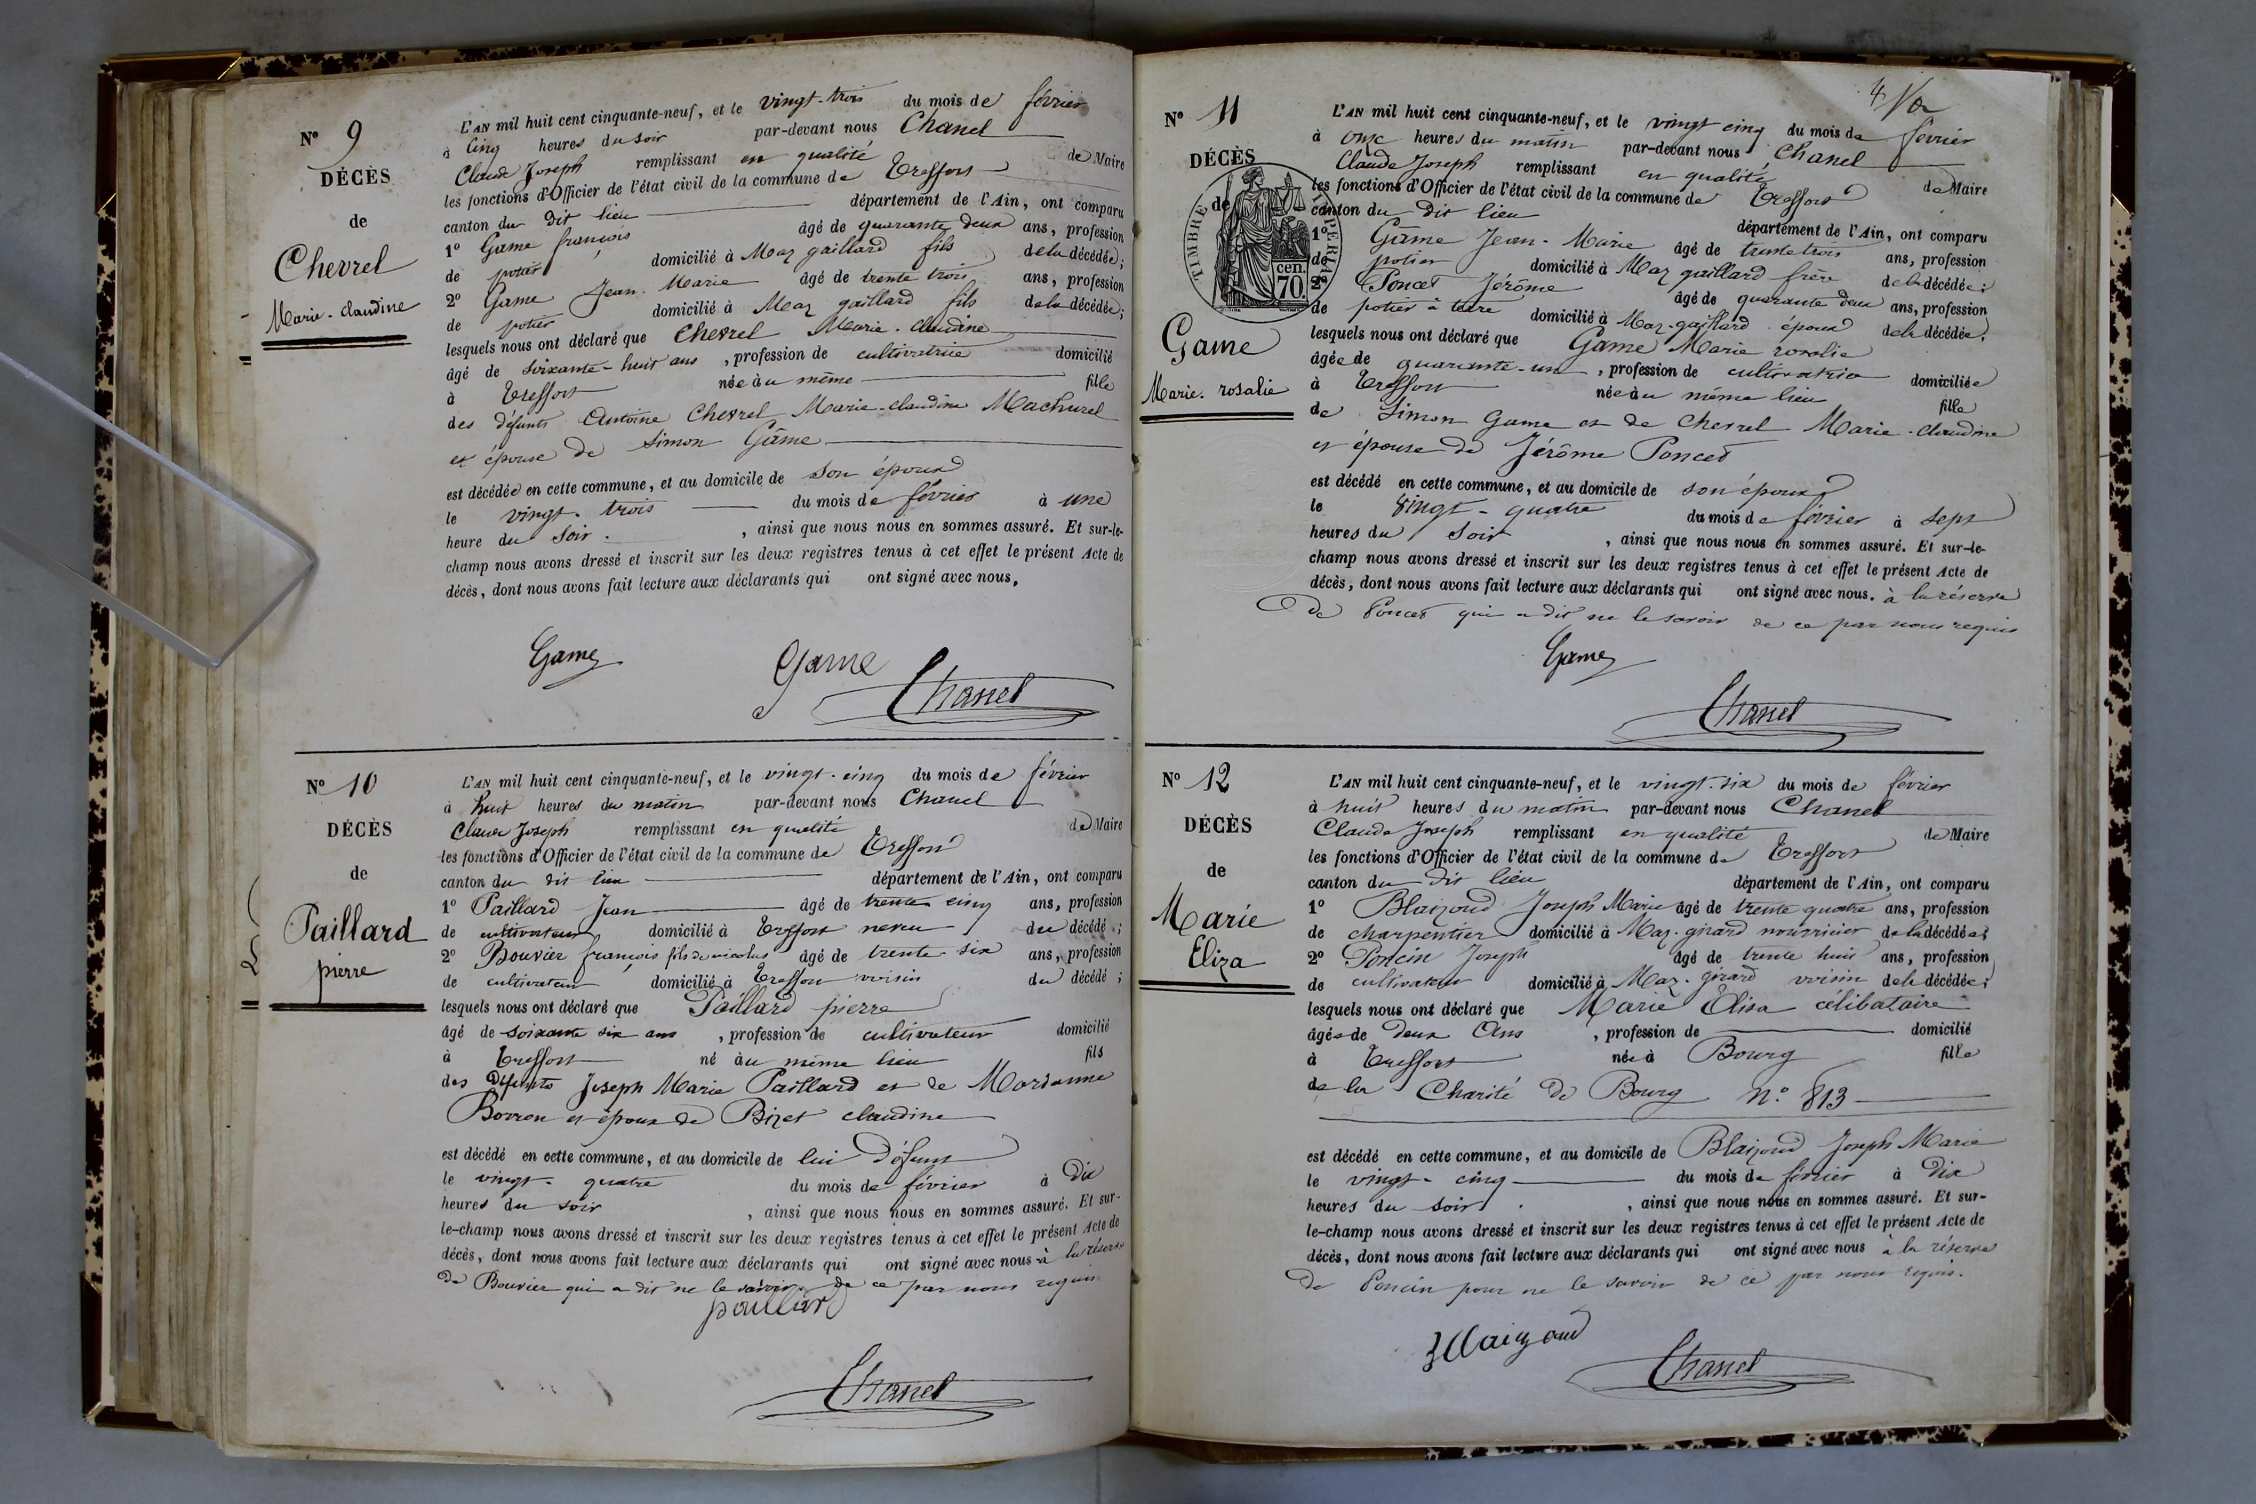 N° 9
DÉCÈS
de
Chevrel
Marie-claudine
L'AN mil huit cent cinquante-neuf, et le vingt-trois du mois de février
à Cinq heures du soir par-devant nous Chanel
Claude Joseph remplissant en qualité de Maire
les fonctions d'Officier de l'état civil de la commune de Treffort
canton du dit lieu département de l'Ain, ont comparu
1° Game françois âgé de quarante deux ans, profession
de potier domicilié à Maz gaillard fils de la décédée;
2° Game Jean-Marie âgé de trente trois ans, profession
de potier domicilié à Maz gaillard fils de la décédée;
lesquels nous ont déclaré que Chevrel Marie-claudine
âgé de soixante-huit ans, profession de cultivatrice domicilié
à Treffort née au même fille
des défunts Antoine Chevrel Marie-claudine Machurel
et épouse de Simon Gâme
est décédée en cette commune, et au domicile de son époux
le vingt-trois du mois de février à une
heure du soir, ainsi que nous nous en sommes assuré. Et sur-le-
champ nous avons dressé et inscrit sur les deux registres tenus à cet effet le présent Acte de
décès, dont nous avons fait lecture aux déclarants qui ont signé avec nous.
Game Game
Chanel
N° 10
DÉCÈS
de
Paillard
pierre
L'AN mil huit cent cinquante-neuf, et le vingt-cinq du mois de février
à huit heures du matin par-devant nous Chanel
Claude Joseph remplissant en qualité de Maire
les fonctions d'Officier de l'état civil de la commune de Treffort
canton du dit lieu département de l'Ain, ont comparu
1° Paillard Jean âgé de trente cinq ans, profession
de cultivateur domicilié à Treffort neveu du décédé;
2° Bouvier françois fils de nicolas âgé de trente six ans, profession
de cultivateur domicilié à Treffort voisin du décédé;
lesquels nous ont déclaré que Paillard pierre
âgé de soixante six ans, profession de cultivateur domicilié
à Treffort né au même lieu fils
des Défunts Joseph Marie Paillard et de Marianne
Borron et époux de Bizet claudine
est décédé en cette commune, et au domicile de lui Défunt
le vingt-quatre du mois de février à Dix
heures du soir, ainsi que nous nous en sommes assuré. Et sur-
le-champ nous avons dressé et inscrit sur les deux registres tenus à cet effet le présent Acte de
décès, dont nous avons fait lecture aux déclarants qui ont signé avec nous à la réserve
de Bouvier qui a dit ne le savoir de ce par nous requis
paillard
Chanel
N° 11
DÉCÈS
de
TIMBRE IMPERIAL
70 cen.
Game
Marie-rosalie
L'AN mil huit cent cinquante-neuf, et le vingt cinq du mois de février
à onze heures du matin par-devant nous Chanel
Claude Joseph remplissant en qualité de Maire
les fonctions d'Officier de l'état civil de la commune de Treffort
canton du dit lieu département de l'Ain, ont comparu
1° Gâme Jean-Marie âgé de trente trois ans, profession
de potier domicilié à Maz gaillard frère de la décédée;
2° Poncet Jérôme âgé de quarante deux ans, profession
de potier à terre domicilié à Maz-gaillard époux de la décédée;
lesquels nous ont déclaré que Game Marie rosalie
âgée de quarante-un, profession de cultivatrice domiciliée
à Treffort née au même lieu fille
de Simon Game et de Chevrel Marie-claudine
et épouse de Jérôme Poncet
est décédé en cette commune, et au domicile de son époux
le Vingt-quatre du mois de février à sept
heures du soir, ainsi que nous nous en sommes assuré. Et sur-le-
champ nous avons dressé et inscrit sur les deux registres tenus à cet effet le présent Acte de
décès, dont nous avons fait lecture aux déclarants qui ont signé avec nous. à la réserve
De Poncet qui a dit ne le savoir de ce par nous requis
Game
Chanel
N° 12
DÉCÈS
de
Marie
Eliza
L'AN mil huit cent cinquante-neuf, et le vingt-six du mois de février
à huit heures du matin par-devant nous Chanel
Claude Joseph remplissant en qualité de Maire
les fonctions d'Officier de l'état civil de la commune de Treffort
canton du dit lieu département de l'Ain, ont comparu
1° Blaizond Joseph Marie âgé de trente quatre ans, profession
de charpentier domicilié à Maz-girard nourricier de la décédée;
2° Poncin Joseph âgé de trente huit ans, profession
de cultivateur domicilié à Maz-girard voisin de la décédée;
lesquels nous ont déclaré que Marie Elisa célibataire
âgée de deux ans, profession de domicilié
à Treffort née à Bourg fille
de la Charité de Bourg N° 813
est décédé en cette commune, et au domicile de Blaizond Joseph Marie
le vingt-cinq du mois de février à Dix
heures du soir, ainsi que nous nous en sommes assuré. Et sur-
le-champ nous avons dressé et inscrit sur les deux registres tenus à cet effet le présent Acte de
décès, dont nous avons fait lecture aux déclarants qui ont signé avec nous à la réserve
De Poncin pour ne le savoir de ce par nous requis.
Blaizond
Chanel